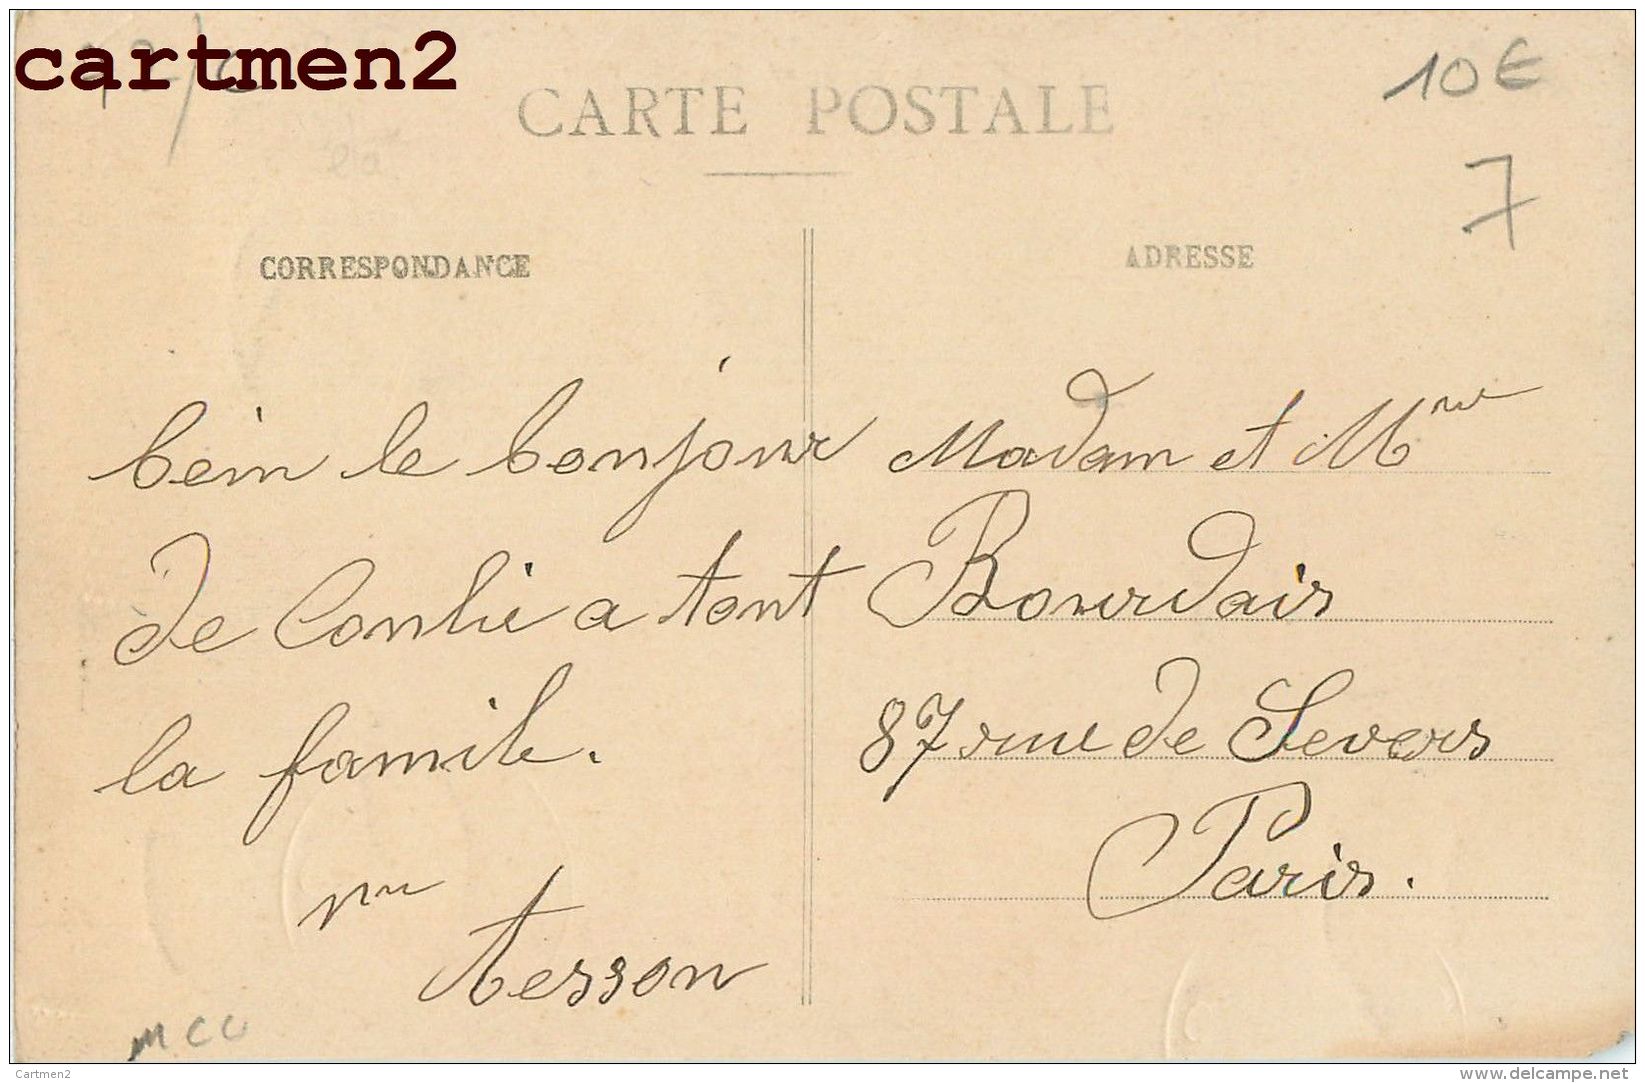 cartmen2
CARTE POSTALE
10€
7
CORRESPONDANCE
bein le bonjour
de Conlie a tout
la famile.
Tesson
MCC
ADRESSE
Madam et Mr
Bourdais
87 rue de Severs
Paris.
Cartmen2
http://www.delcampe.net